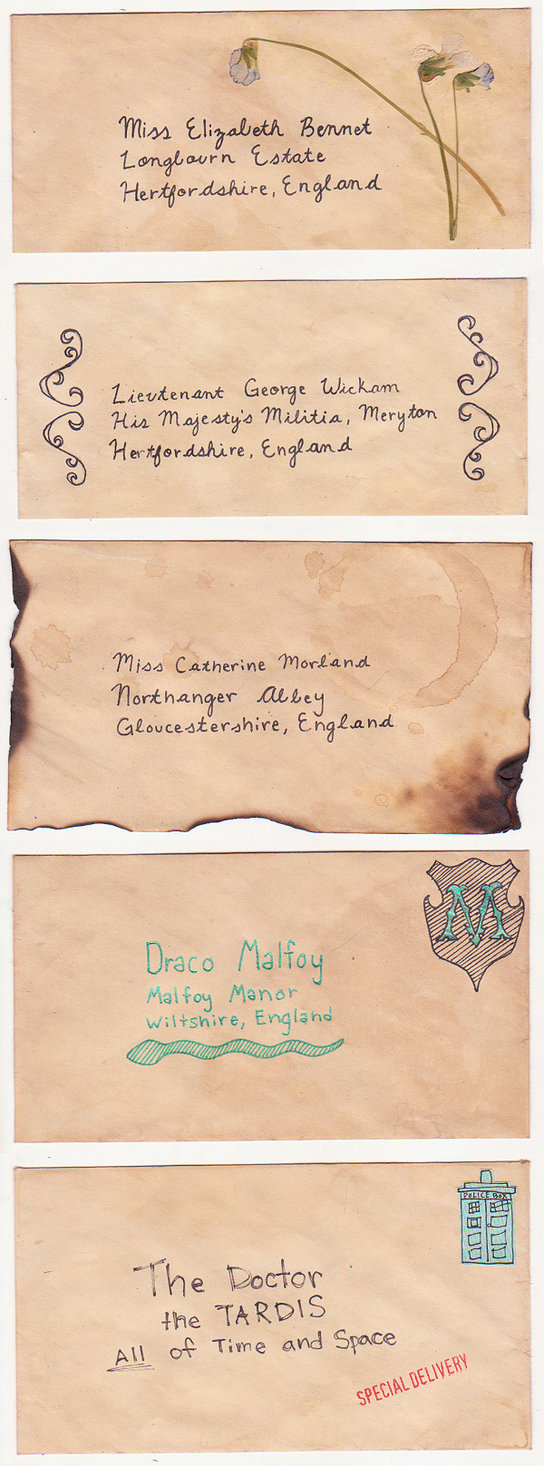 Miss Elizabeth Bennet
Longbourn Estate
Hertfordshire, England
Lieutenant George Wickam
His Majesty's Militia, Meryton
Hertfordshire, England
Miss Catherine Morland
Northanger Abbey
Gloucestershire, England
M
Draco Malfoy
Malfoy Manor
Wiltshire, England
POLICE BOX
The Doctor
the TARDIS
All of Time and Space
SPECIAL DELIVERY